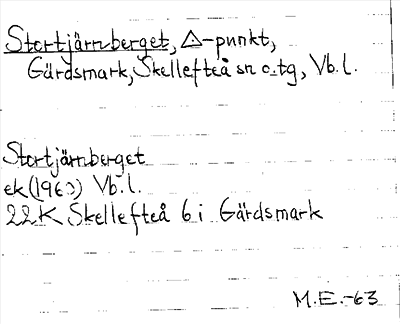 Stortjärnberget, △-punkt,
Gärdsmark, Skellefteå sn o. tg, Vb. l.
Stortjärnberget
ek (1960) Vb. l.
22K Skellefteå 6 i Gärdsmark
M.E.-63